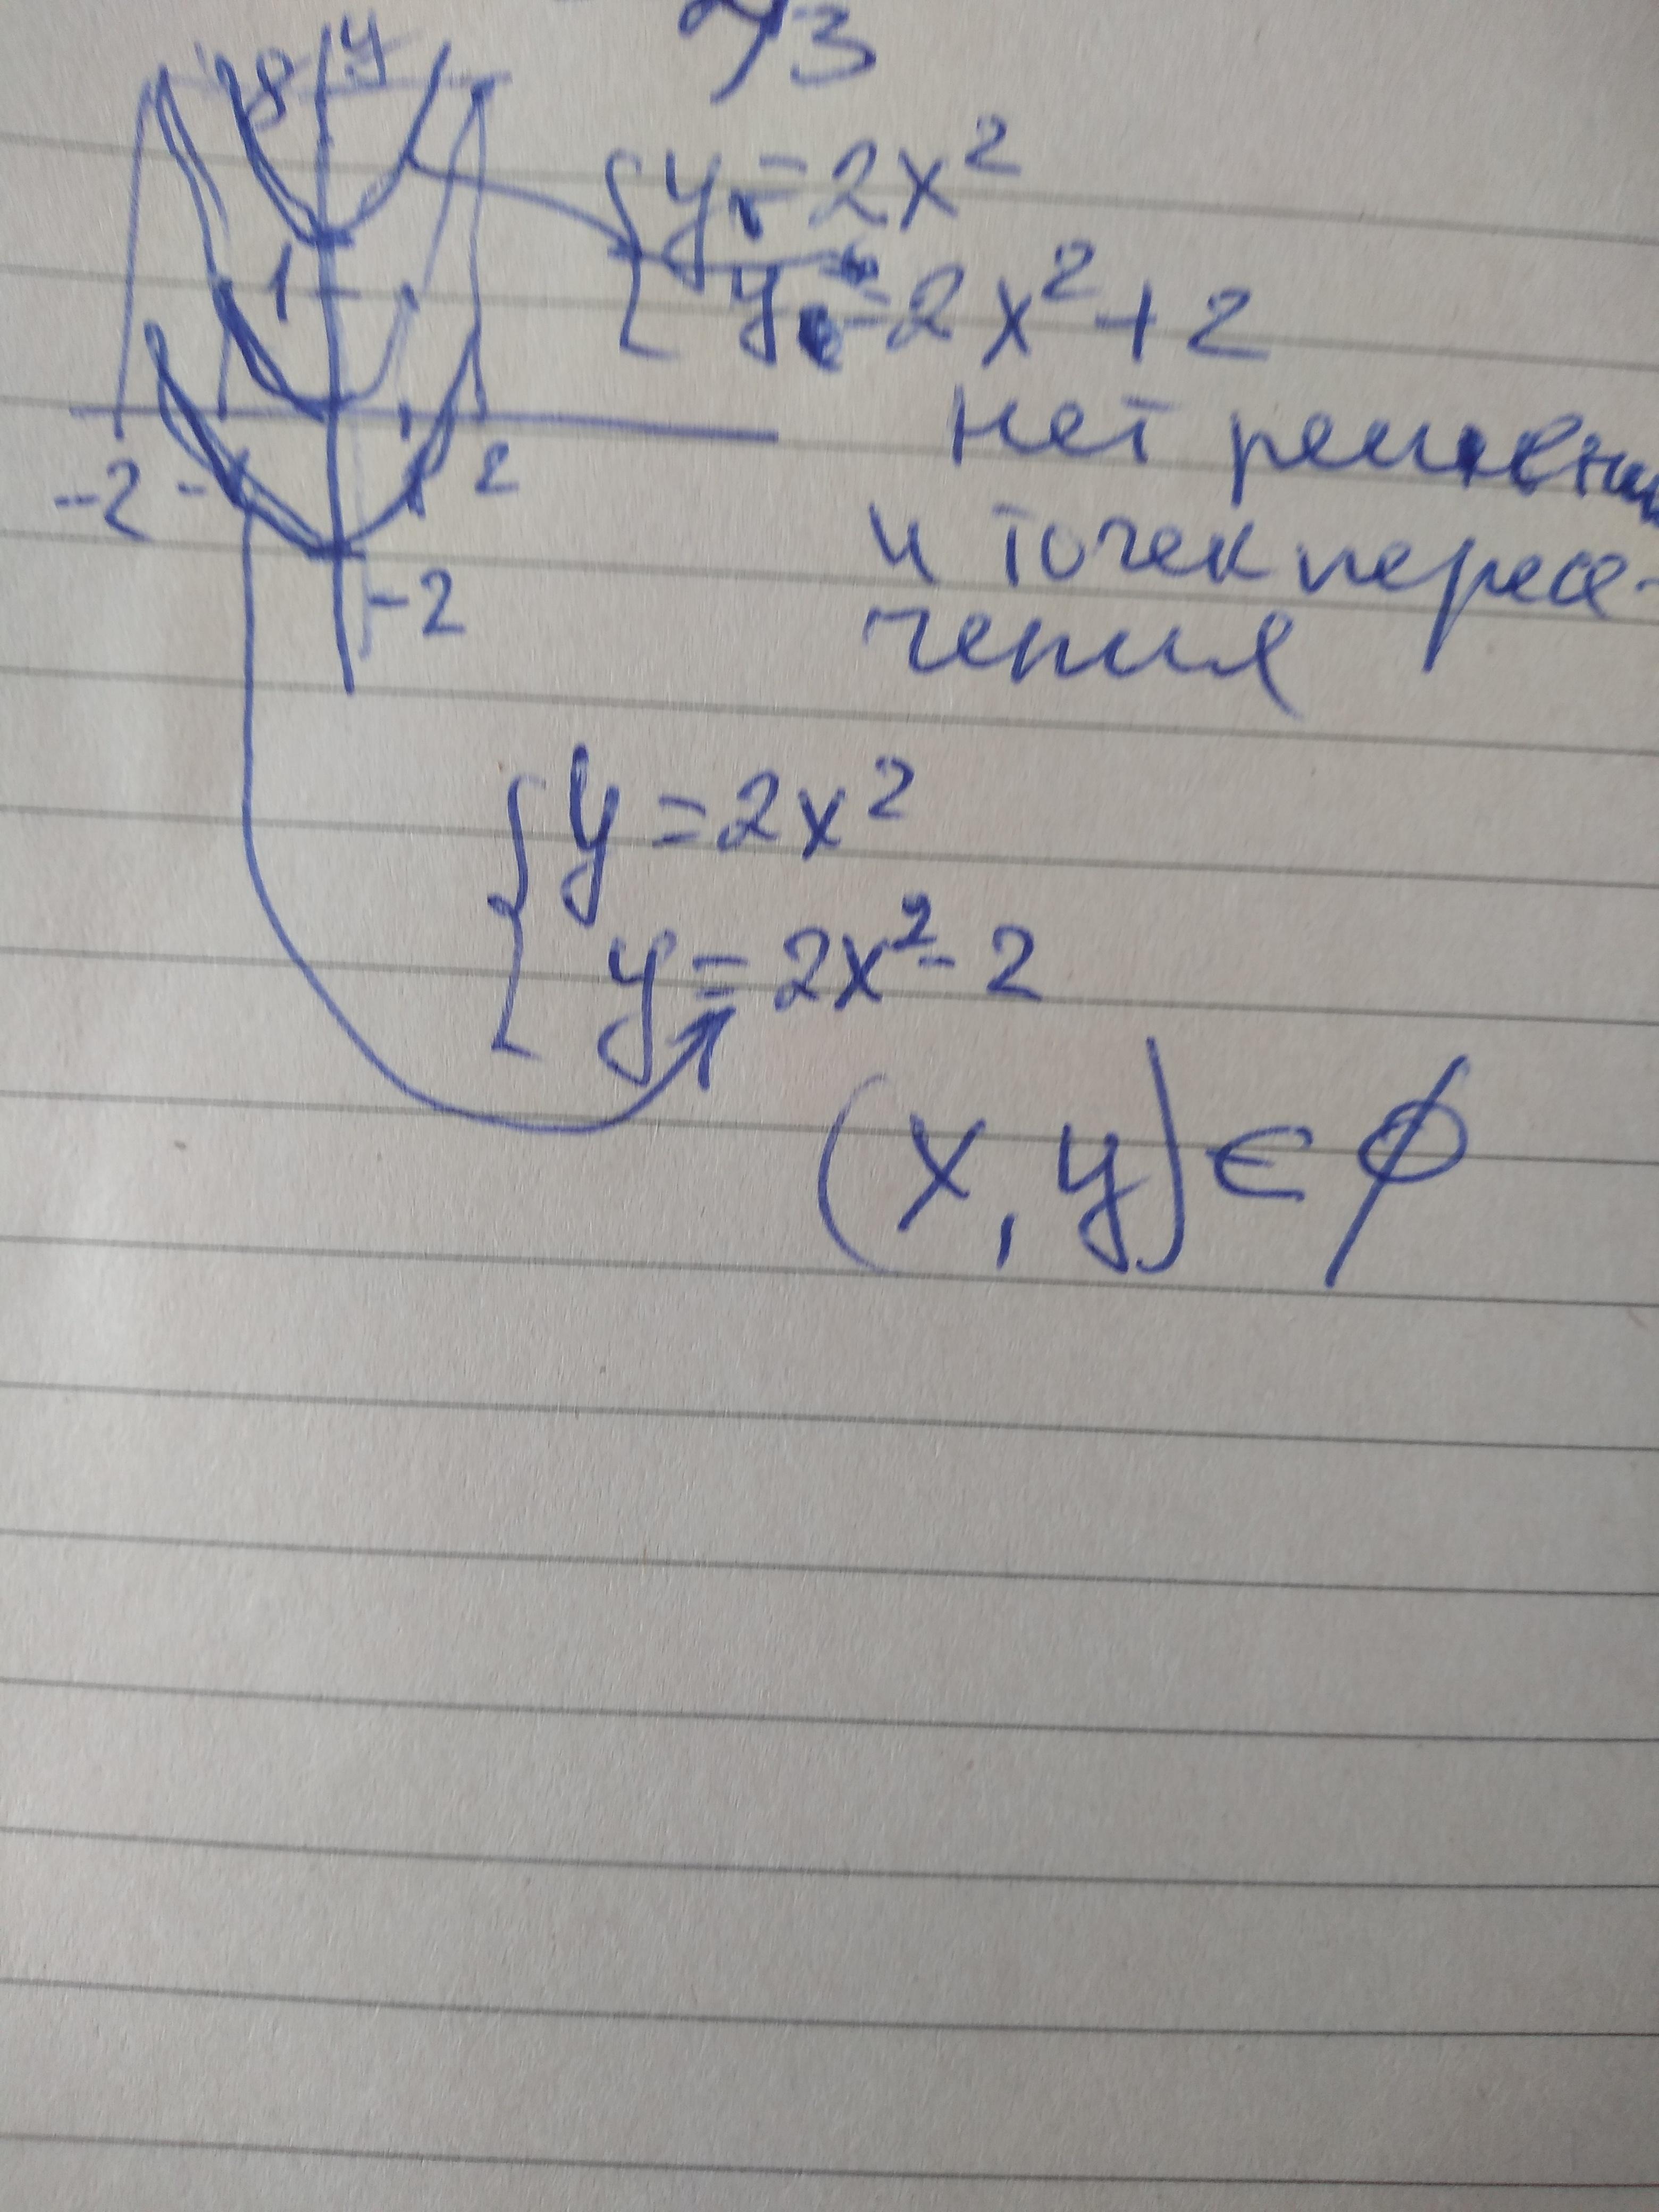 2/3
8 y
{ y = 2x²
1
y = 2x² + 2
нет решени
-2 - 2
и точек пересе-
-2
чения
{ y = 2x²
y = 2x² - 2
(x, y) ∈ ∅